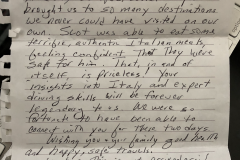 brought us to so many destinations
we never could have visited on our
own. Scot was able to eat some
terrific, authentic Italian meals,
feeling confident that they were
safe for him. That, in and of
itself, is priceless! Your
insights into Italy and expert
driving skills will be forever
legendary to us. We were so
fortunate to have been able to
connect with you for these two days.
Wishing you & your family good health
and happy, safe travels!